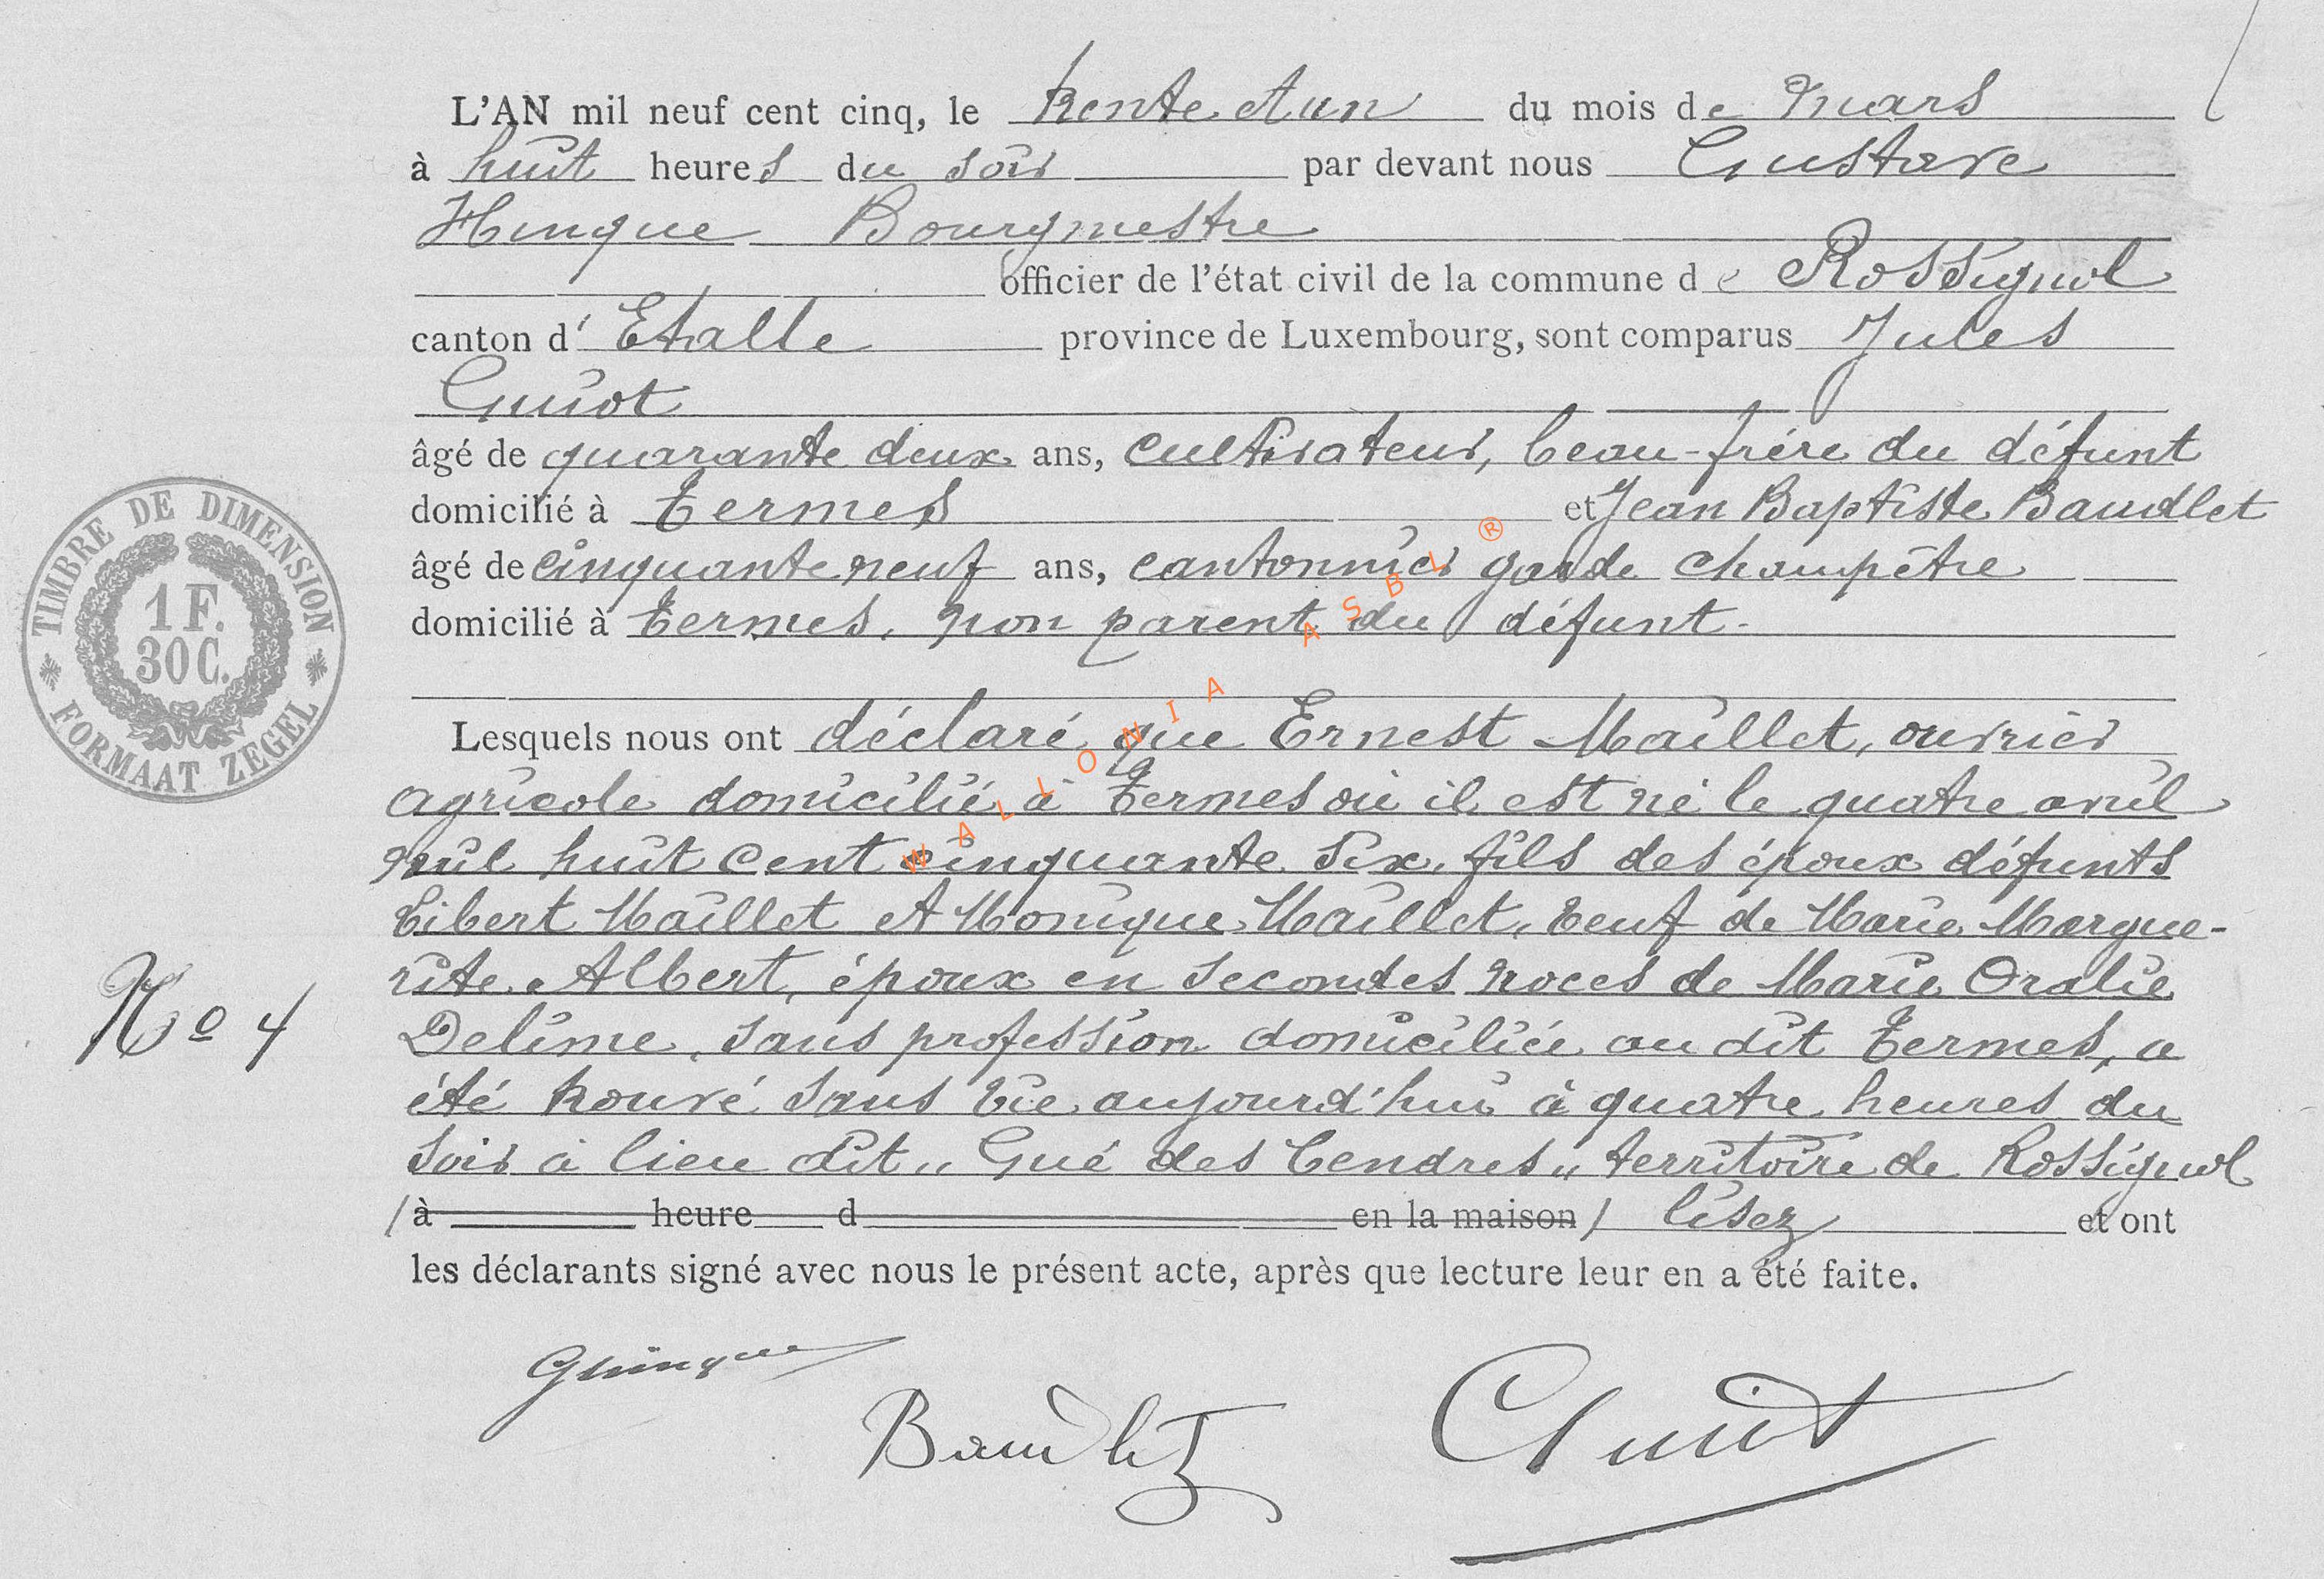 L'AN mil neuf cent cinq, le trente et un du mois de Mars
à huit heures du soir par devant nous Gustave
Hinque Bourgmestre
officier de l'état civil de la commune de Rossignol
canton d' Etalle province de Luxembourg, sont comparus Jules
Guiot
âgé de quarante deux ans, cultivateur, beau-frère du défunt
domicilié à Termes et Jean Baptiste Baudlet
âgé de cinquante neuf ans, cantonnier garde champêtre
domicilié à Termes, non parent du défunt.
Lesquels nous ont déclaré que Ernest Maillet, ouvrier
agricole domicilié à Termes où il est né le quatre avril
mil huit cent cinquante six, fils des époux défunts
Tibert Maillet et Monique Maillet, veuf de Marie Margue-
rite Albert, époux en secondes noces de Marie Oralie
Delime, sans profession domiciliée au dit Termes, a
été trouvé sans vie aujourd'hui à quatre heures du
soir à lieu dit „ Gué des Cendres „ territoire de Rossignol
/ à heure d en la maison / lisez et ont
les déclarants signé avec nous le présent acte, après que lecture leur en a été faite.
GHinque
Baudlet
Guiot
No 4
TIMBRE DE DIMENSION
1 F.
30 C.
FORMAAT ZEGEL
WALLONIA ASBL ®